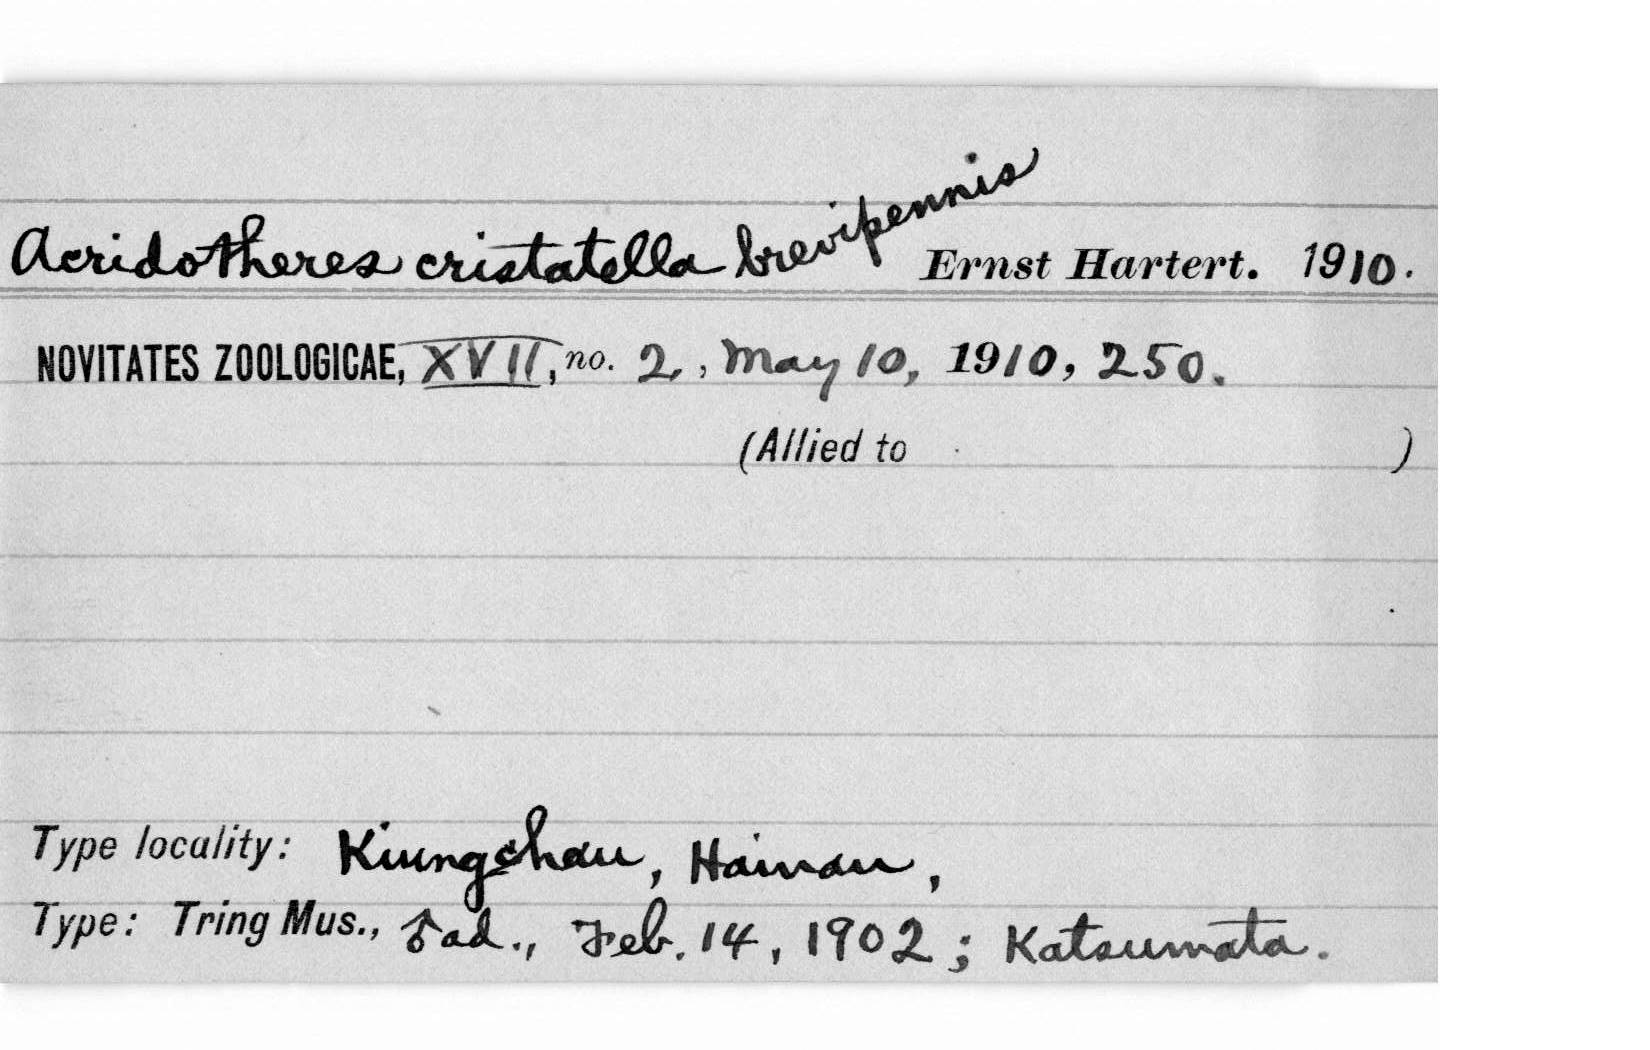 Acridotheres cristatella brevipennis Ernst Hartert. 1910.
NOVITATES ZOOLOGICAE, XVII, no. 2, , May 10, 1910, 250.
(Allied to )
Type locality: Kiungchau, Hainan,
Type: Tring Mus., ♂ ad., Feb. 14, 1902; Katsumata.